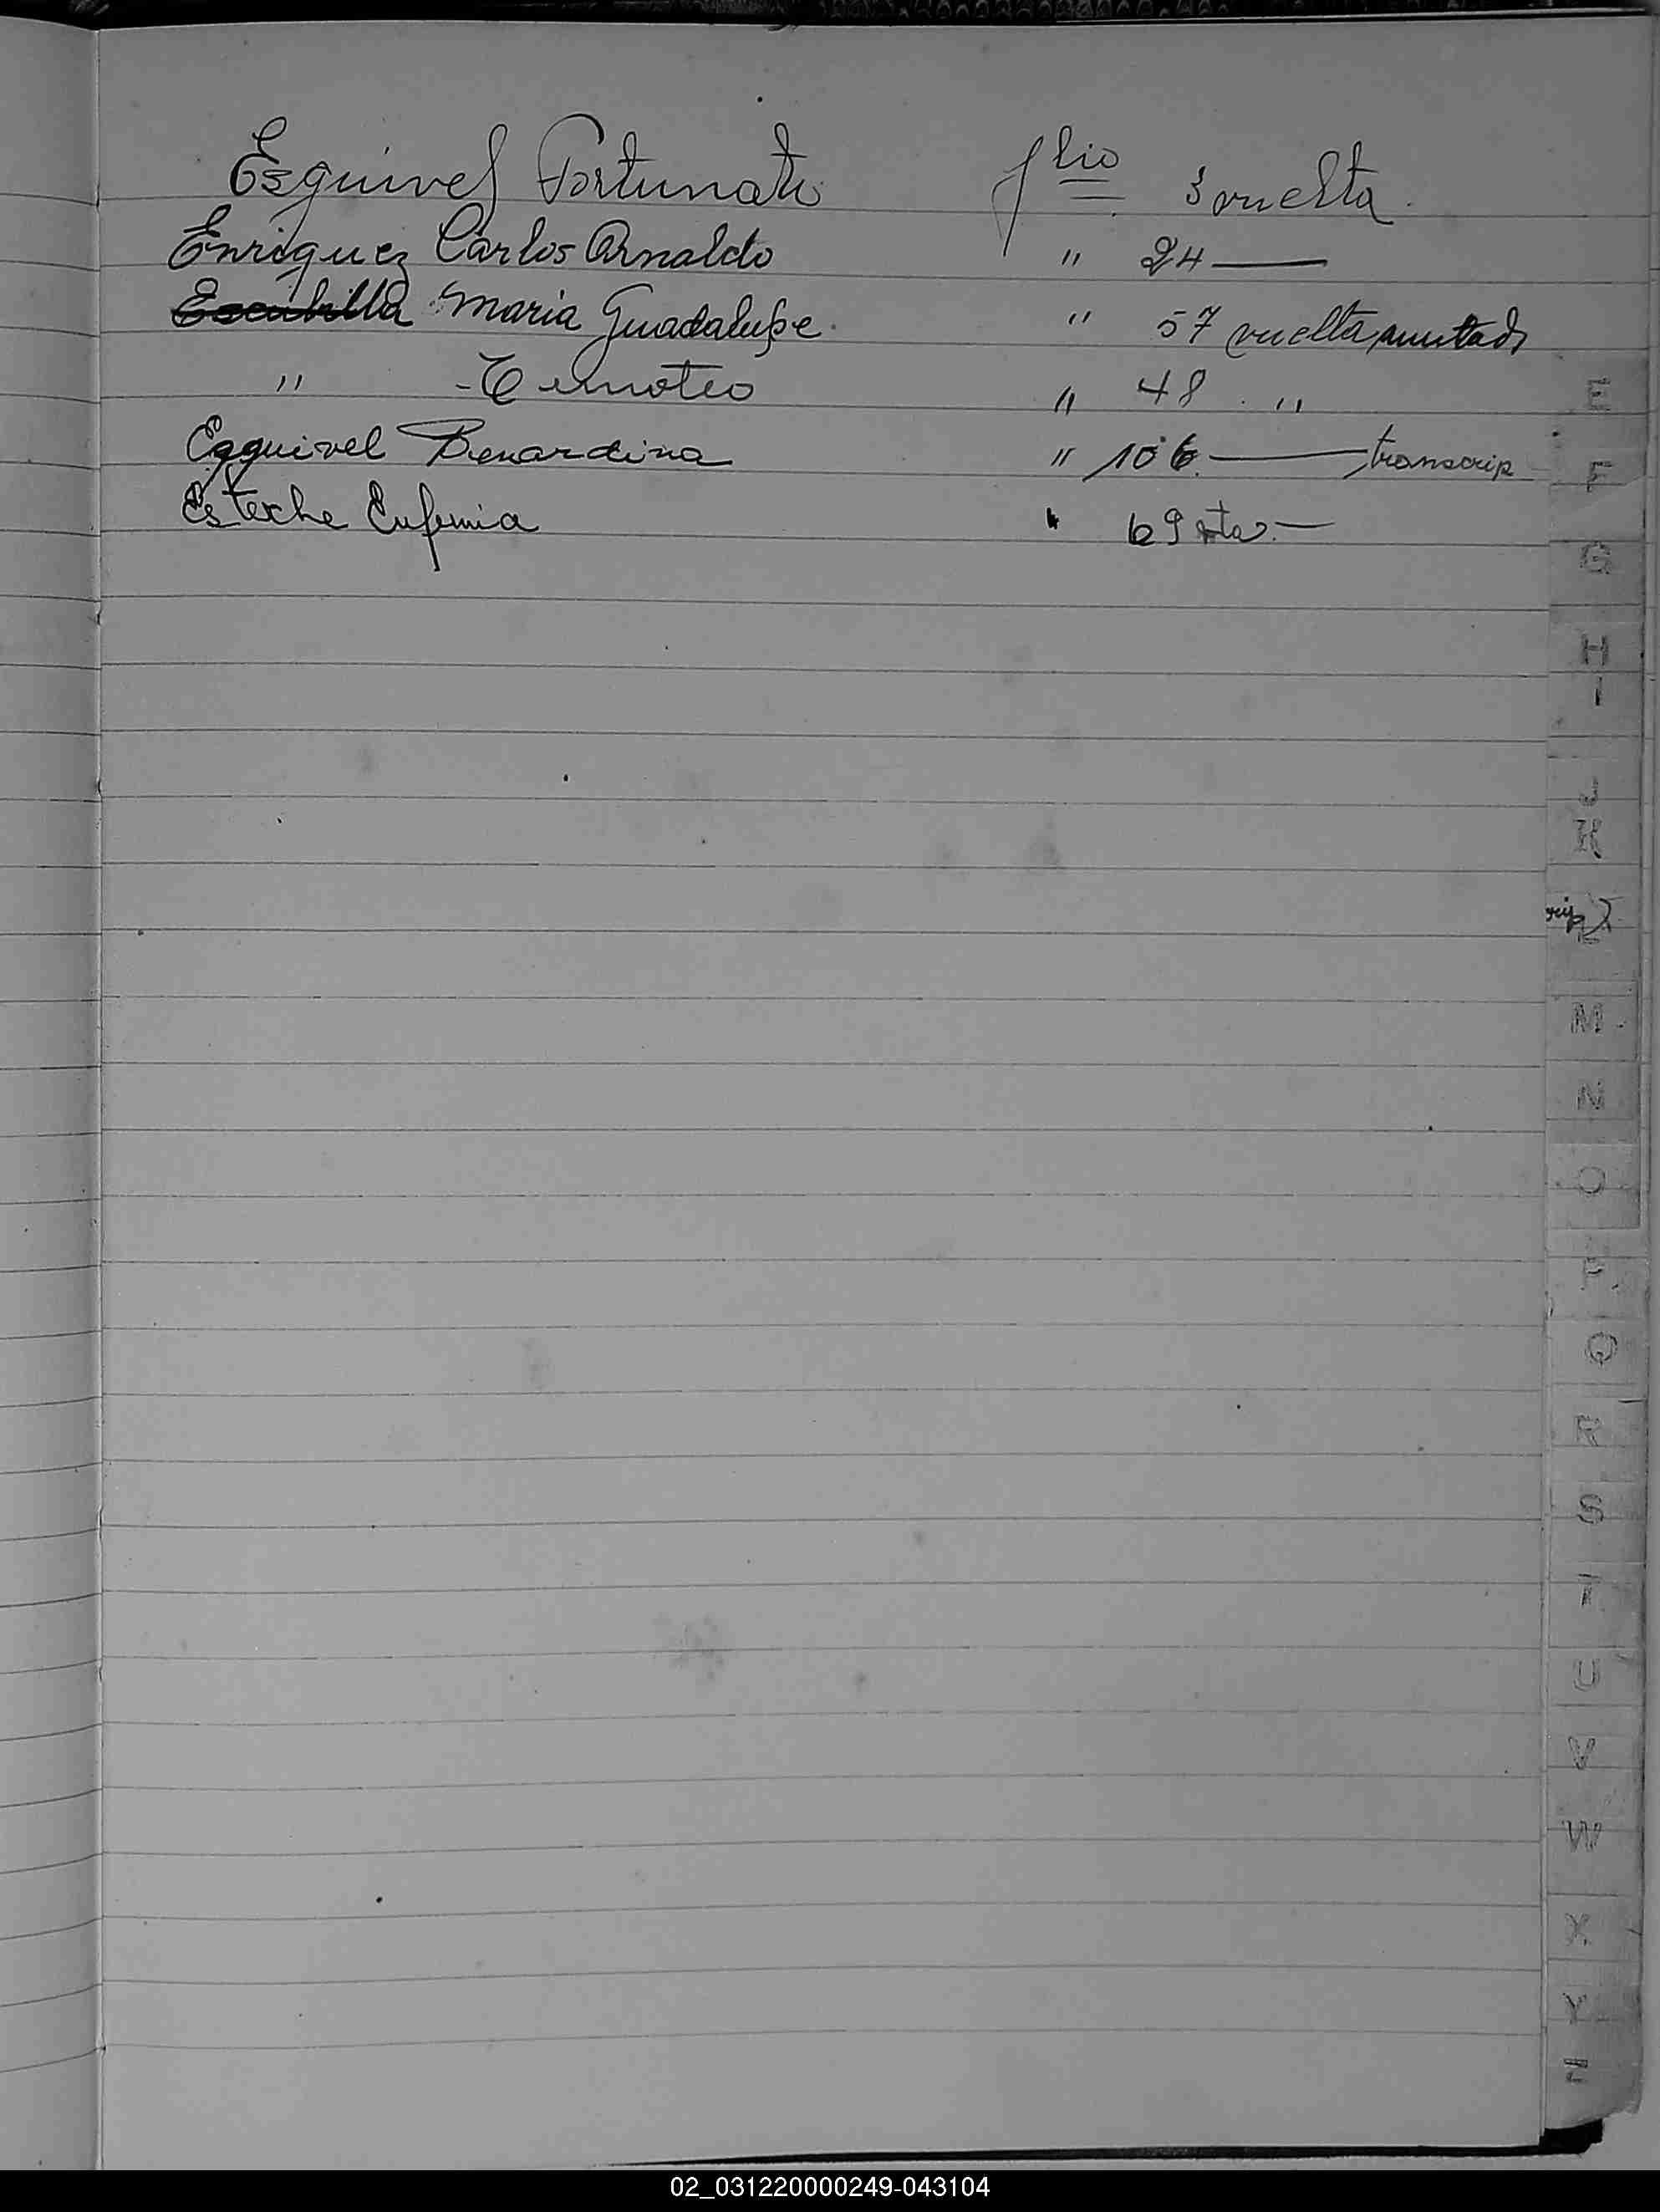 Esquivel Fortunato folio 3 vuelta.
Enriquez Carlos Arnaldo " 24 —
Escubilla Maria Guadalupe. " 57 vuelta
" - Timoteo " 48 . "
Esquivel Benardina " 106. — transcrip
Esteche Eufemia " 69 vta. —
E
F
G
H
I
J
K
crip
L
M
N
O
P
Q
R
S
T
U
V
W
X
Y
Z
02_031220000249-043104